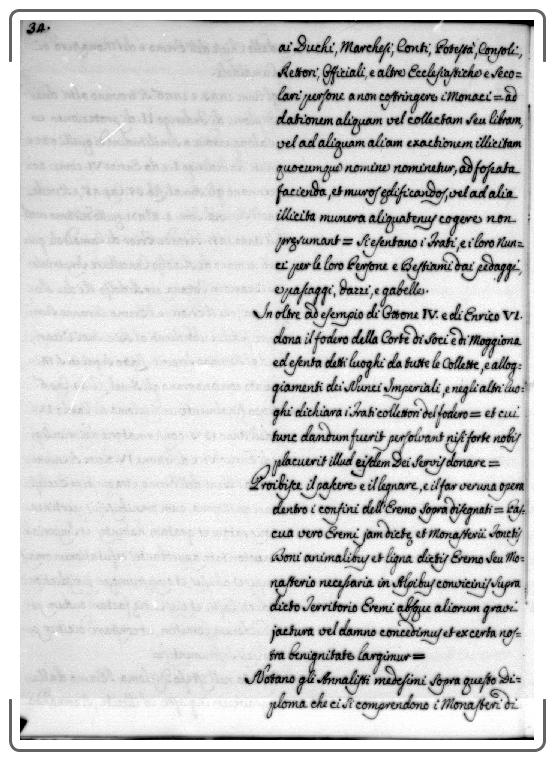 34.
ai Duchi, Marchesi, Conti, Potestà, Consoli,
Rettori, Officiali, e altre Ecclesiastiche e Seco=
lari persone a non costringere i Monaci = ad
dationem aliquam vel collectam seu libram,
vel ad aliquam aliam exactionem illicitam
quocumque nomine nominetur, ad fossata
facienda, et muros edificandos, vel ad alia
illicita munera aliquatenus cogere non
presumant = Si esentano i Frati, e i loro Nun=
ci per le loro Persone e Bestiami dai pedaggi,
e passaggi, dazzi, e gabelle.
In oltre ad esempio di Ottone IV. e di Enrico VI.
dona il fodero della Corte di Soci e di Moggiona
ed esenta detti luoghi da tutte le Collette, e allog=
giamenti dei Nunci Imperiali, e negli altri luo=
ghi dichiara i Frati collettori del fodero = et cui
tunc dandum fuerit persolvant nisi forte nobis
placuerit illud eisdem Dei servis donare =
Proibisce il pascere e il legnare, e il far veruna opera
dentro i confini dell'Eremo sopra disegnati = Pas=
cua vero Eremi jam dictę et Monasterii Fontis
Boni animalibus et ligna dictis Eremo seu Mo=
nasterio necessaria in Alpibus convicinis supra
dicto Territorio Eremi absque aliorum gravi
jactura vel damno concedimus et ex certa nos=
tra benignitate largimur =
Notano gli Annalisti medesimi sopra questo Di=
ploma che ci si comprendono i Monasteri di